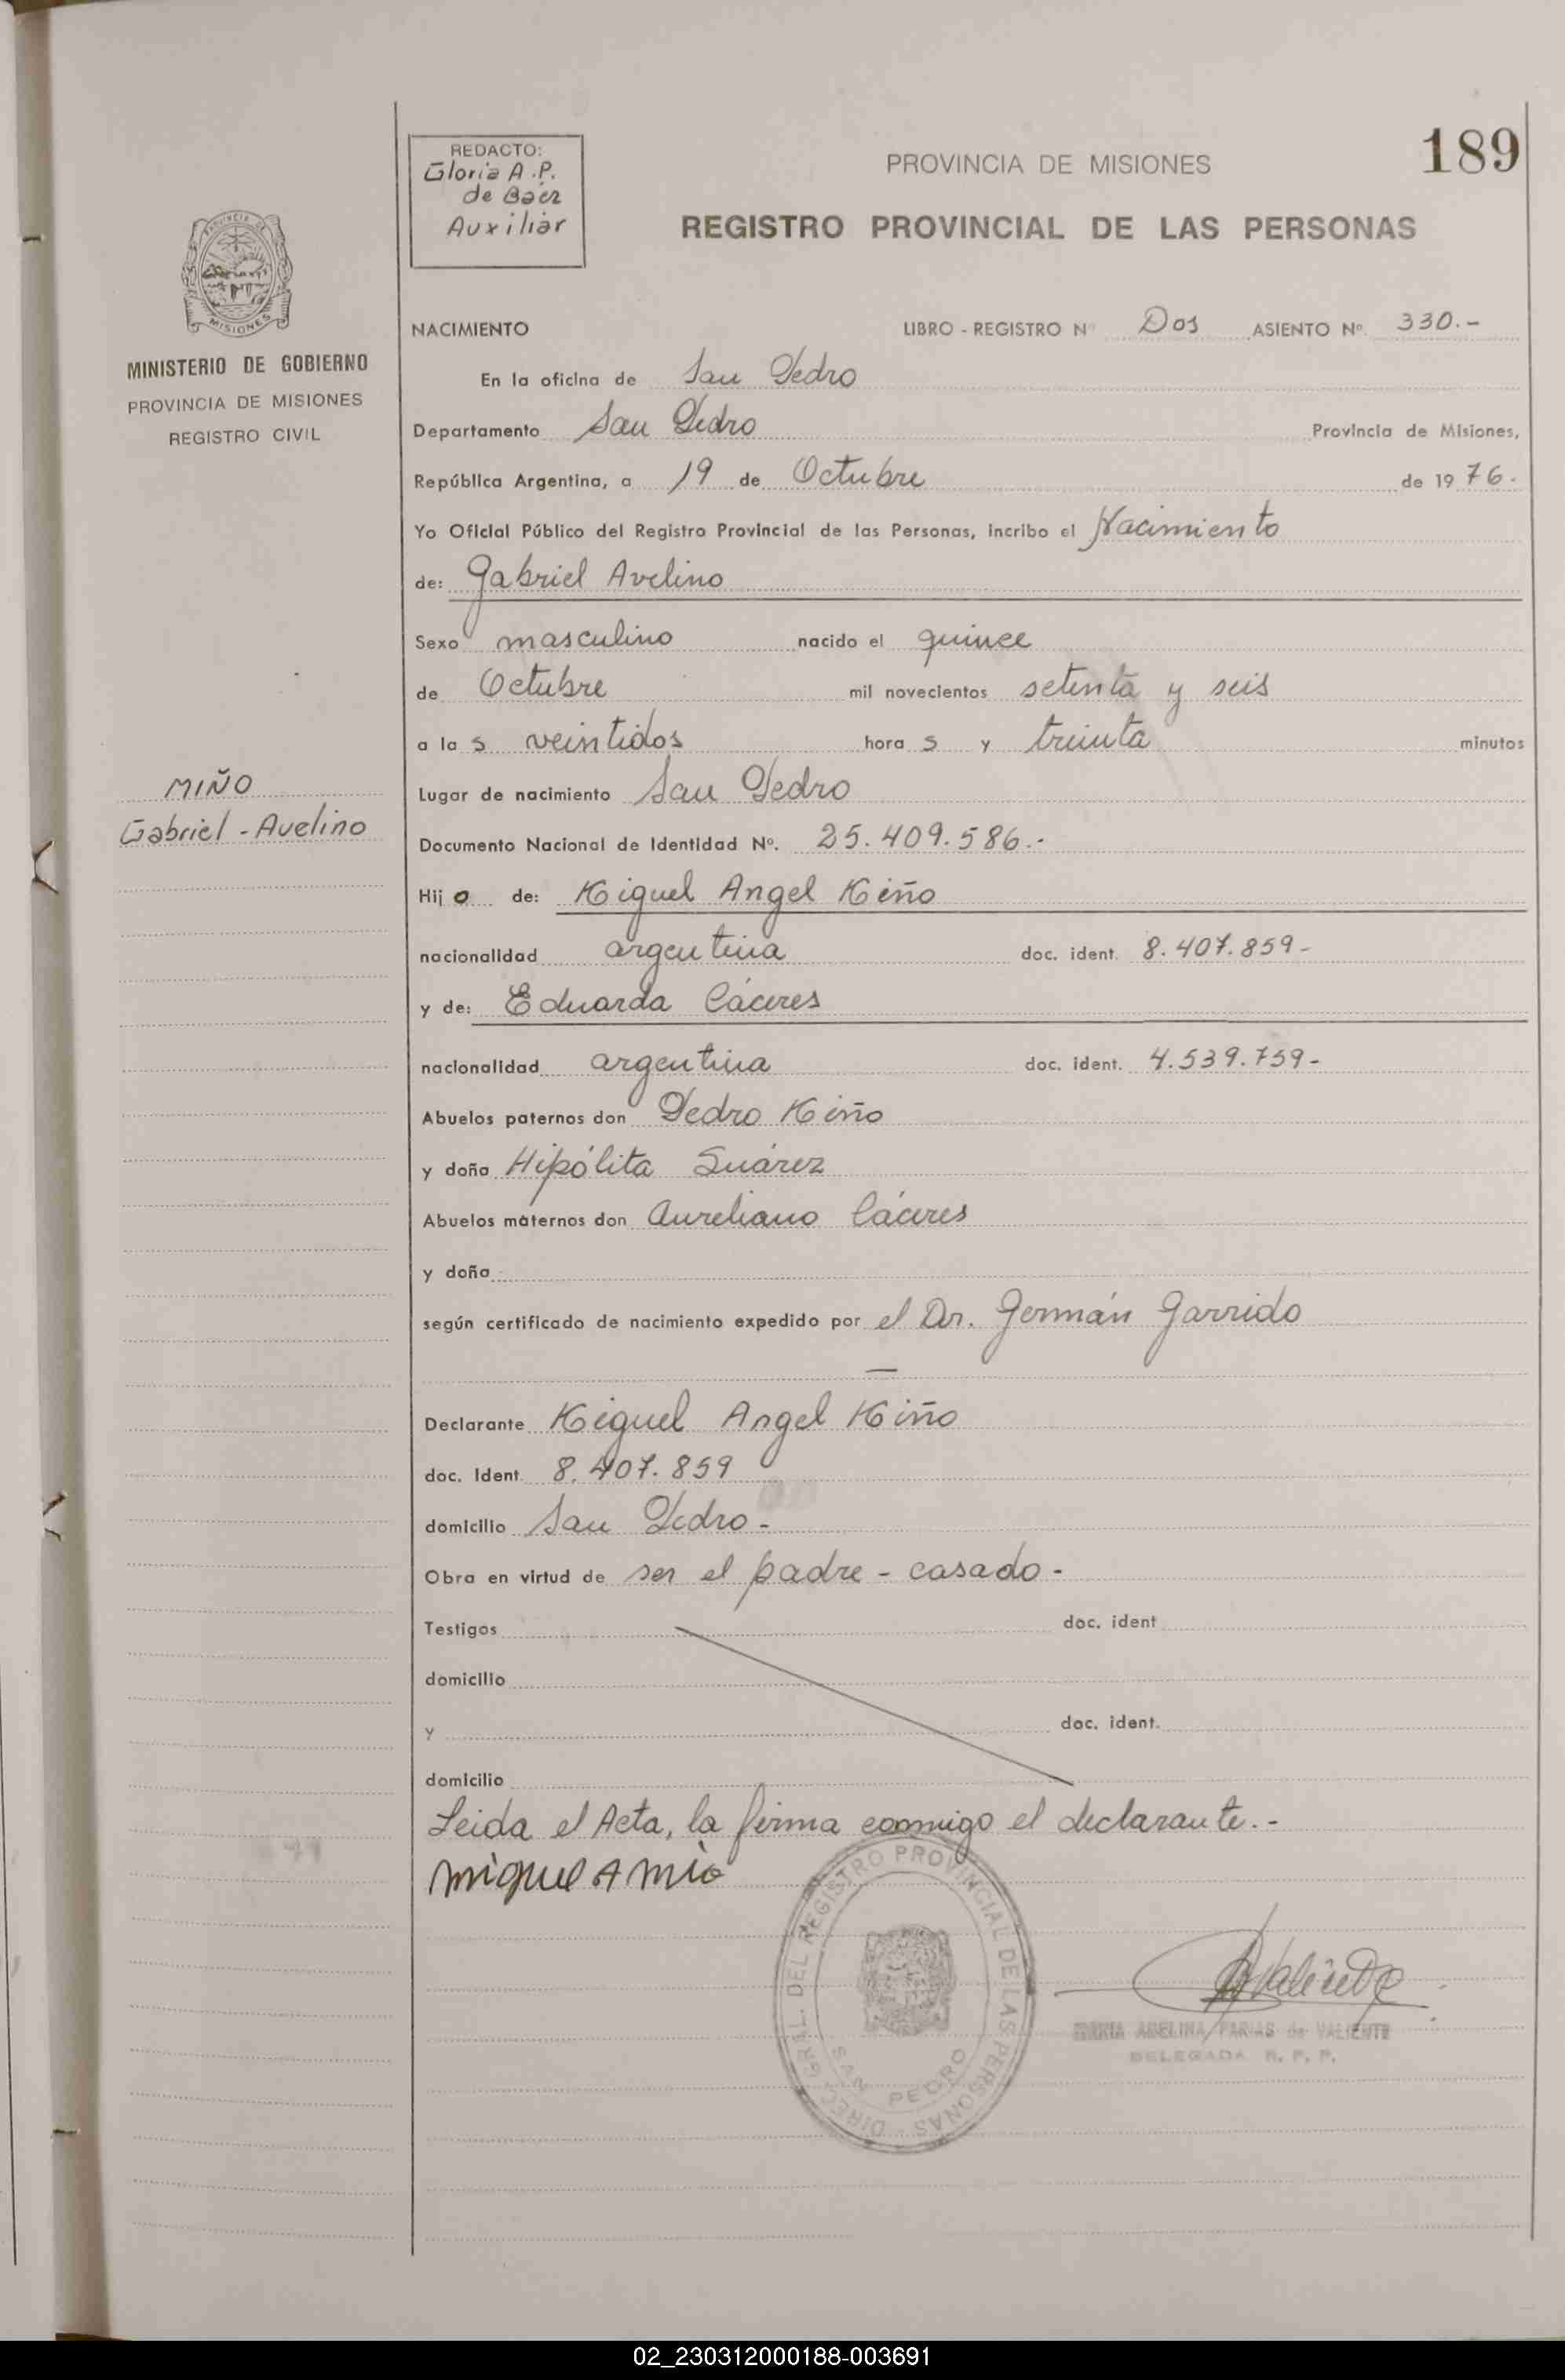 189
REDACTO:
Gloria A.P.
de Báez
Auxiliar
PROVINCIA DE MISIONES
REGISTRO PROVINCIAL DE LAS PERSONAS
PROVINCIA
MISIONES
MINISTERIO DE GOBIERNO
PROVINCIA DE MISIONES
REGISTRO CIVIL
NACIMIENTO LIBRO - REGISTRO Nº Dos ASIENTO Nº. 330.-
En la oficina de San Pedro
Departamento San Pedro Provincia de Misiones,
República Argentina, a 19 de Octubre de 1976.
Yo Oficial Público del Registro Provincial de las Personas, incribo el Nacimiento
de: Gabriel Avelino
Sexo masculino nacido el quince
de Octubre mil novecientos setenta y seis
a las veintidos horas y treinta minutos
MIÑO
Gabriel - Avelino
Lugar de nacimiento San Pedro
Documento Nacional de Identidad Nº. 25.409.586.-
Hijo de: Miguel Angel Miño
nacionalidad argentina doc. ident. 8.407.859-
y de: Eduarda Cáceres
nacionalidad argentina doc. ident. 4.539.759-
Abuelos paternos don Pedro Miño
y doña Hipólita Suárez
Abuelos maternos don Aureliano Cáceres
y doña
según certificado de nacimiento expedido por el Dr. Germán Garrido
—
Declarante Miguel Angel Miño
doc. Ident. 8.407.859
domicilio San Pedro -
Obra en virtud de ser el padre - casado -
Testigos doc. ident
domicilio
y doc. ident.
domicilio
Leida el Acta, la firma conmigo el declarante.-
Miguel A Miño
DIREC. GRAL. DEL REGISTRO PROVINCIAL DE LAS PERSONAS
SAN PEDRO
Valiente
MARIA ADELINA FARIAS de VALIENTE
DELEGADA R. P. P.
02_230312000188-003691